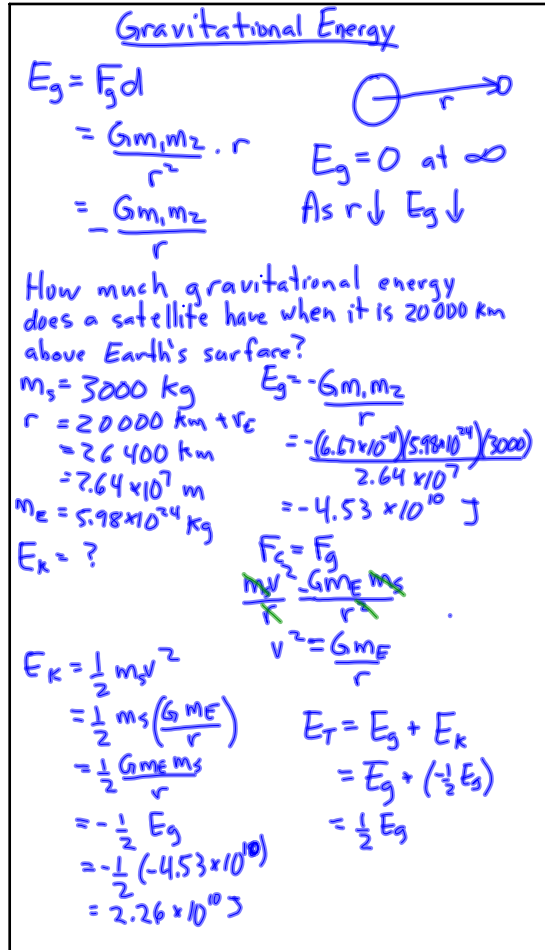 Gravitational Energy
E_g = F_g d
= Gm₁m₂/r² · r
= -Gm₁m₂/r
r
E_g = 0 at ∞
As r↓ E_g↓
How much gravitational energy
does a satellite have when it is 20 000 km
above Earth's surface?
m_s = 3000 kg
r = 20 000 km + r_E
= 26 400 km
= 2.64 × 10⁷ m
m_E = 5.98×10²⁴ kg
E_k = ?
E_g = -Gm₁m₂/r
= -(6.67×10⁻¹¹)(5.98×10²⁴)(3000)/2.64 × 10⁷
= -4.53 × 10¹⁰ J
F_c = F_g
m_s v²/r = Gm_E m_s/r²
v² = Gm_E/r
E_k = ½ m_s v²
= ½ m_s (G m_E/r)
= ½ Gm_E m_s/r
= -½ E_g
= -½ (-4.53 × 10¹⁰)
= 2.26 × 10¹⁰ J
E_T = E_g + E_k
= E_g + (-½ E_g)
= ½ E_g